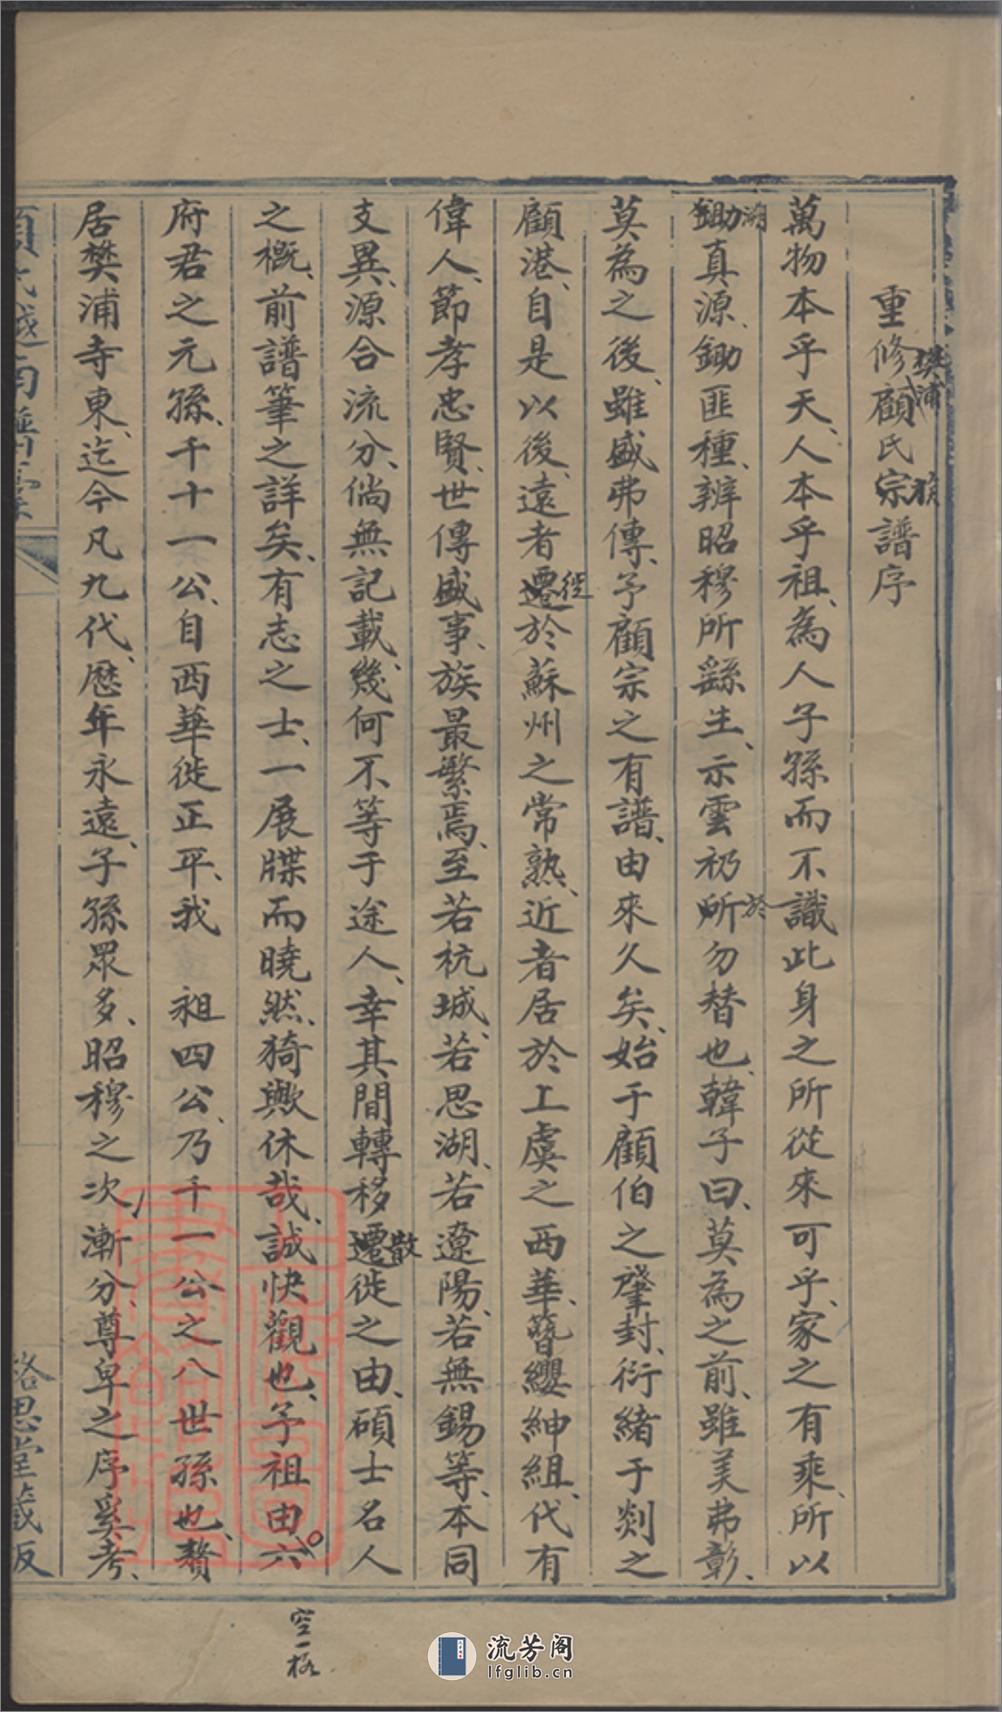 重修顧氏宗譜序
樊浦
族
萬物本乎天、人本乎祖、為人子孫而不識此身之所從來可乎、家之有乘、所以
鋤真源、鋤匪種、辨昭穆所繇生、示雲礽所勿替也、韓子曰、莫為之前、雖美弗彰、
溯
於
莫為之後、雖盛弗傳、予顧宗之有譜、由來久矣、始于顧伯之肇封、衍緒于剡之
顧港、自是以後、遠者遷於蘇州之常熟、近者居於上虞之西華、簪纓紳組、代有
從
偉人、節孝忠賢、世傳盛事、族最繁焉、至若杭城、若思湖、若遼陽、若無錫等、本同
支異、源合流分、倘無記載、幾何不等于途人、幸其間轉移遷徙之由、碩士名人
散
之概、前譜筆之詳矣、有志之士、一展牒而曉然、猗歟休哉、誠快觀也、予祖由六
空一格
府君之元孫、千十一公、自西華徙正平、我 祖四公、乃千一公之八世孫也、贅
居樊浦寺東、迄今凡九代、歷年永遠、子孫眾多、昭穆之次、漸分、尊卑之序奚考、
顧氏越南譜
思堂藏版
流芳阁
lfglib.cn